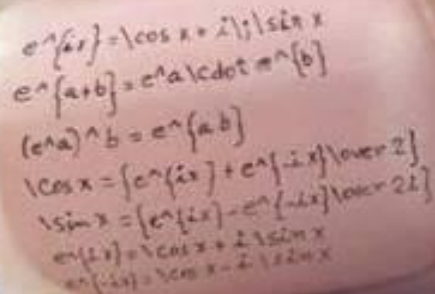 e^{ix}=\cos x + i\;\sin x
e^{a+b}=e^a\cdot e^{b}
(e^a)^b = e^{ab}
\cos x = {e^{ix} + e^{-ix}\over 2}
\sin x = {e^{ix} - e^{-ix}\over 2i}
e^{ix} = \cos x + i \sin x
e^{-ix} = \cos x - i \sin x